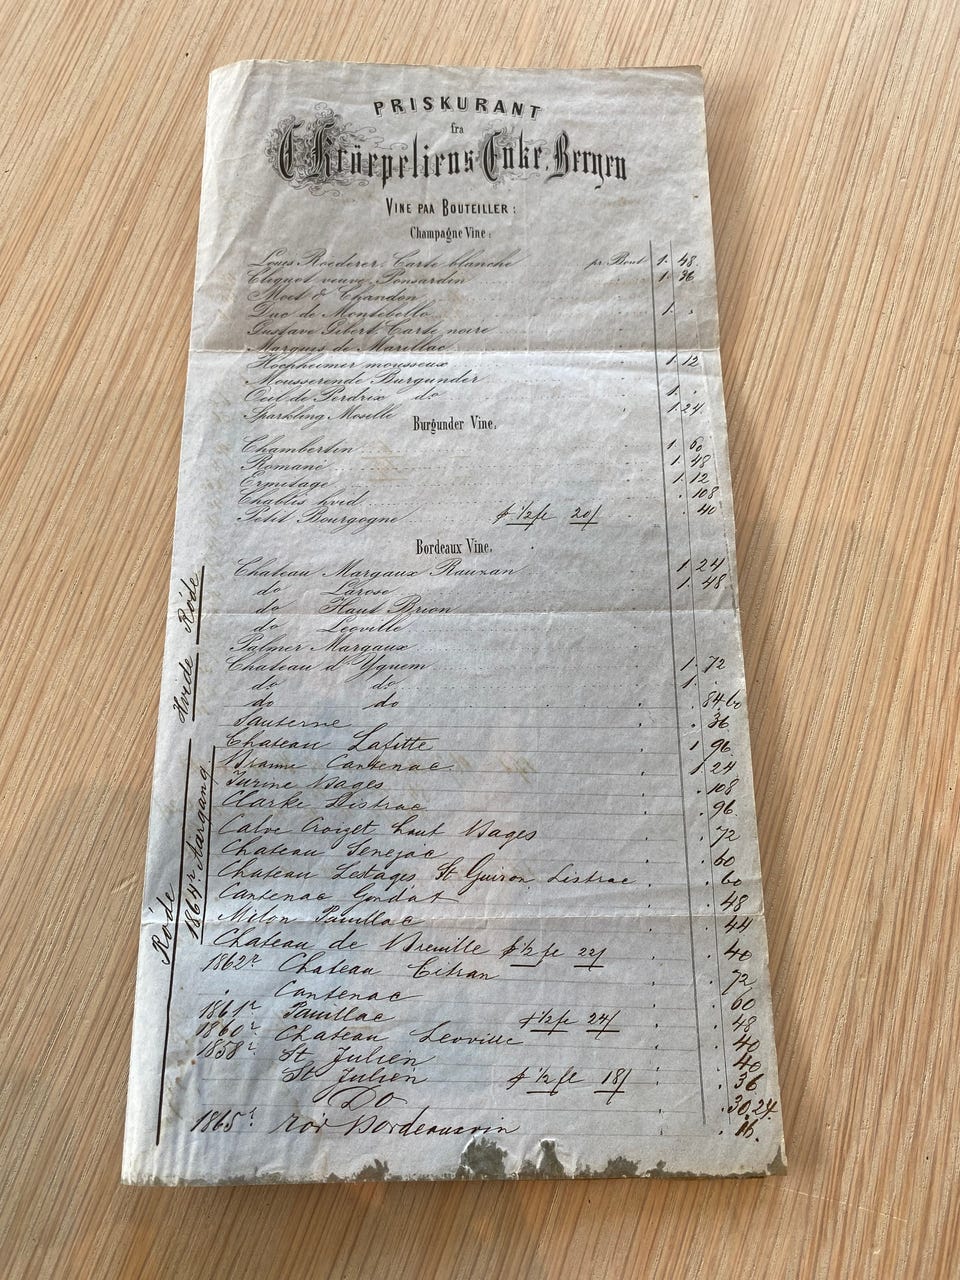 PRISKURANT
fra
C. Kröepeliens Enke, Bergen
VINE PAA BOUTEILLER:
Champagne Vine:
Louis Roederer, Carte blanche pr. Bout 1. 48.
Cliquot veuve Ponsardin 1. 36
Moet & Chandon
Duc de Montebello 1. .
Gustave Gibert Carte noire
Marquis de Marillac
Hochheimer mousseux 1. 12
Mousserende Burgunder
Oeil de Perdrix do 1. .
Sparkling Moselle 1. 24.
Burgunder Vine.
Chambertin 1. 60
Romané 1. 48
Ermitage 1. 12
Chablis hvid . 108
Petit Bourgogne 1/2 fl 20/ . 40
Bordeaux Vine.
Chateau Margaux Rauzan 1. 24
do Larose 1. 48.
do Haut Brion
do Leoville
Palmer Margaux
Chateau d'Yquem 1. 72
do do 1. .
do do . 84 60
Sauterne . 36
Chateau Lafitte 1. 96.
Cantenac 1. 24
Bages . 108
Clarke Listrac . 96.
Calve Croizet haut Bages . 72
Chateau Senejac . 60
Chateau Lestages St Listrac . 60
Cantenac . 48
Milon Pauillac . 44
Chateau de 1/2 fl 22/ . 40
1862r Chateau Citran . 72
Cantenac . 60
1861r Pauillac 1/2 fl 24/ . 48
1860r Chateau Leoville . 40
1858r St Julien . 40
St Julien 1/2 fl 18/ . 36
Do . 30, 24.
1865r röd Bordeauxvin . 16.
Röde
Hvide
1864r Aargang
Röde